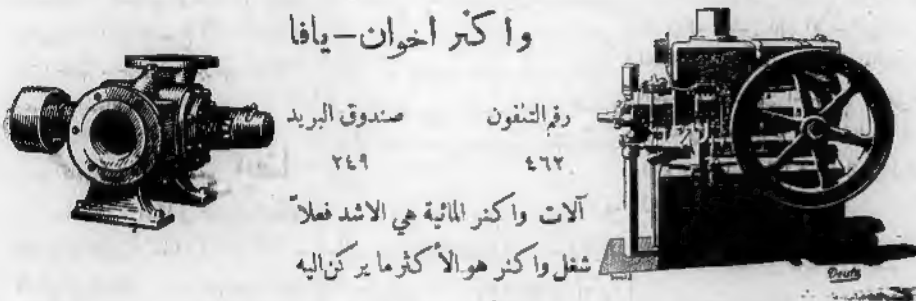 واكنر اخوان - يافا
رقم التلفون صندوق البريد
٤٦٢ ٢٤٩
آلات واكنر المائية هي الاشد فعلاً
شغل واكنر هو الأكثر ما يركن اليه
Deutz